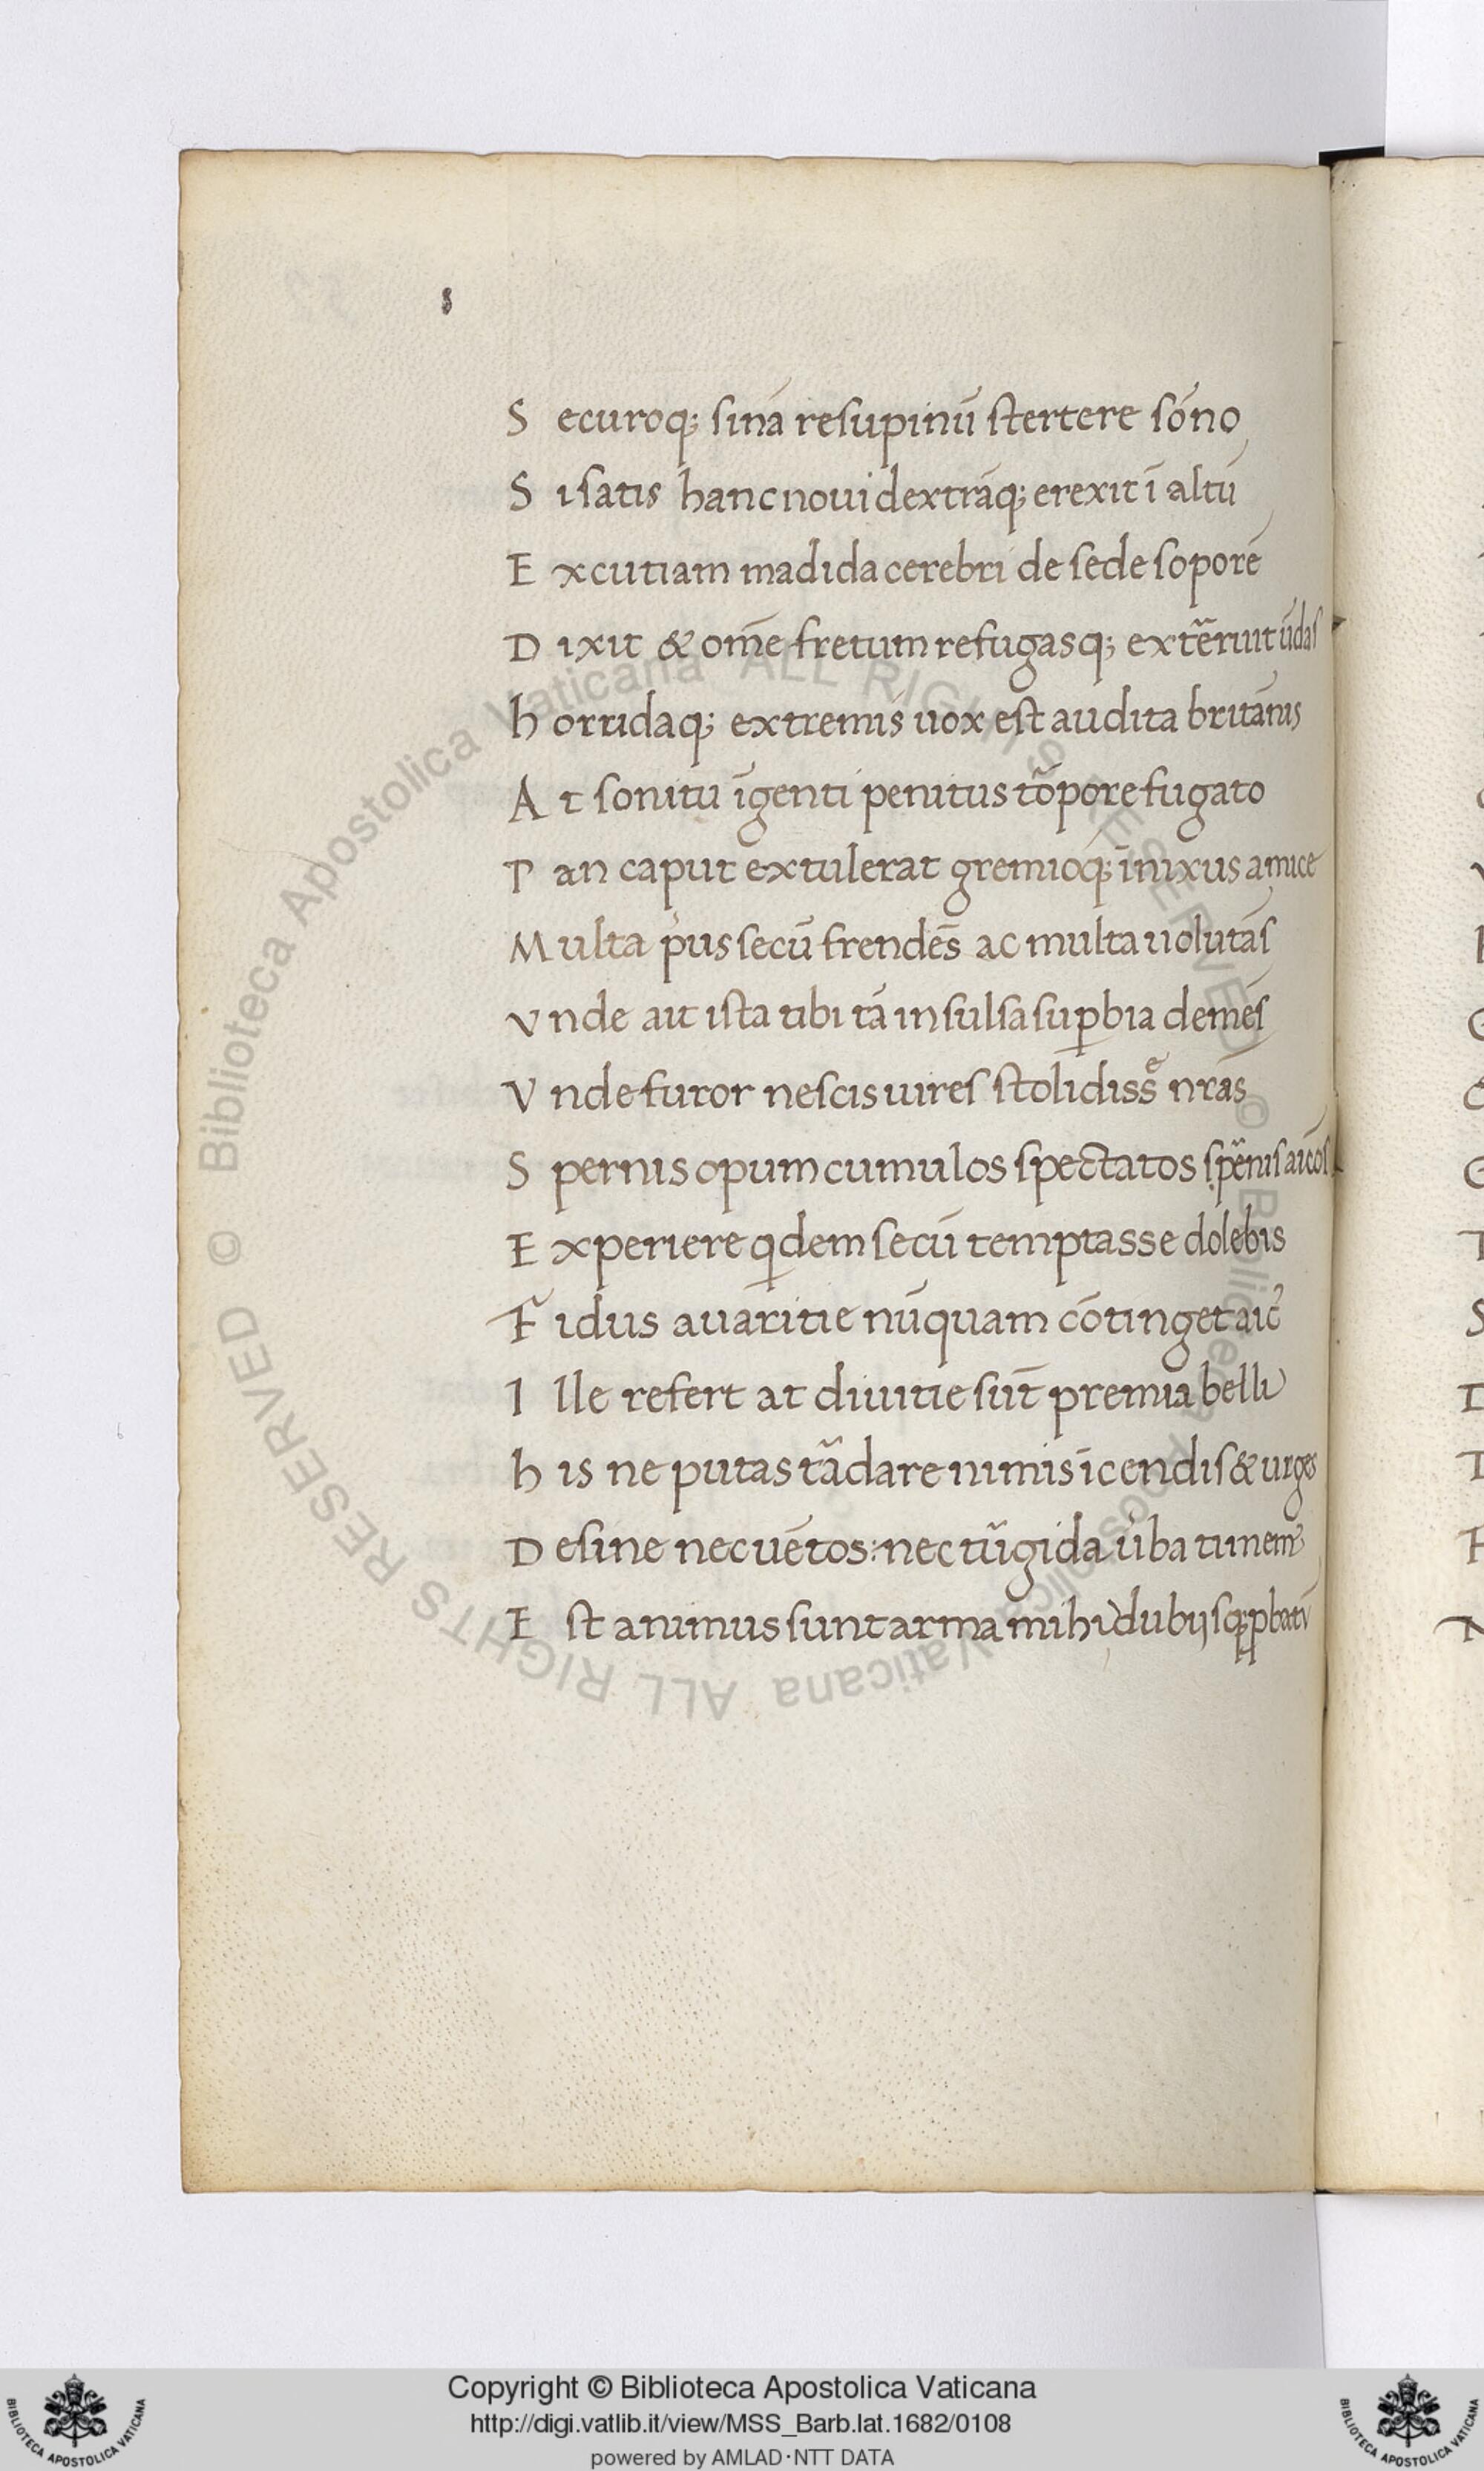 S ecuroq; sinā resupinū stertere sōno
S i satis hanc noui dextrāq; erexit ī altū
E xcutiam madida cerebri de sede soporē
D ixit & om̄e fretum refugasq; extẽruit ūdas
h orridaq; extremis uox est audita britānis
A t sonitu īgenti penitus tōpore fugato
P an caput extulerat gremioq; īnixus amice
M ulta pius secū frendēs ac multa uolutās
V nde ait ista tibi tā insulsa suꝑbia demēs
V nde furor nescis uires stolidissͤ nr̄as
S pernis opum cumulos spectatos spẽnis aīcos
E xperiere qdem secū temptasse dolebis
F idus auaritie nūquam cōtinget aīc
I lle refert at diuitie sūt premia belli
h is ne putas tãdare nimis īcendis & urges
D esine nec uētos: nec tũgida uba timem
E st animus sunt arma mihi dubijsq; ꝓbati
Copyright © Biblioteca Apostolica Vaticana
http://digi.vatlib.it/view/MSS_Barb.lat.1682/0108
powered by AMLAD·NTT DATA